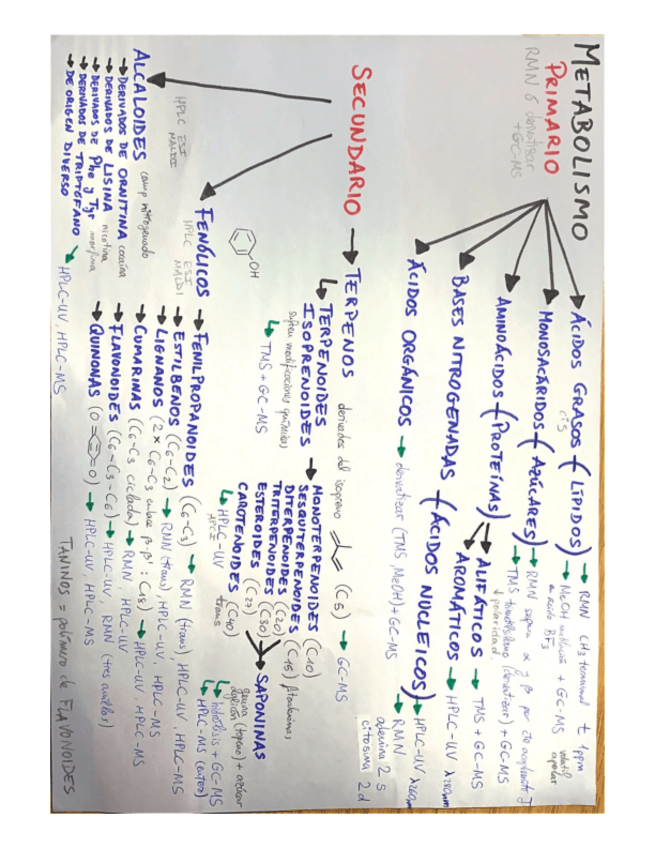 METABOLISMO
PRIMARIO
RMN ó derivatizar
+ GC-MS
ÁCIDOS GRASOS (LÍPIDOS) → RMN CH3 terminal t 1ppm
cis
MeOH + GC-MS volátil
ácido BF3 apolar
MONOSACÁRIDOS (AZÚCARES) → RMN separa α y β por cte acoplamiento J
→ TMS (derivatizar) + GC-MS
↓ polaridad
AMINOÁCIDOS (PROTEÍNAS)
→ ALIFÁTICOS → TMS + GC-MS
→ AROMÁTICOS → HPLC-UV λ280nm
BASES NITROGENADAS (ÁCIDOS NUCLEICOS) → HPLC-UV λ260nm
→ RMN
adenina 2 s
citosina 2 d
ÁCIDOS ORGÁNICOS → derivatizar (TMS, MeOH) + GC-MS
SECUNDARIO
→ TERPENOS derivados del isopreno (C5) → GC-MS
↳ TERPENOIDES
ISOPRENOIDES
sufren modificaciones químicas
↳ TMS + GC-MS
→ MONOTERPENOIDES (C10)
SESQUITERPENOIDES (C15)
DITERPENOIDES (C20)
TRITERPENOIDES (C30)
ESTEROIDES (C27)
CAROTENOIDES (C40)
↳ HPLC-UV trans
SAPONINAS
genina
aglicón (terpeno) + azúcar
↳ hidrólisis + GC-MS
↳ HPLC-MS (entera)
FENÓLICOS
HPLC ESI
MALDI
OH
→ FENILPROPANOIDES (C6-C3) → RMN (trans), HPLC-UV, HPLC-MS
→ ESTILBENOS (C6-C2) → RMN (trans), HPLC-UV, HPLC-MS
→ LIGNANOS (2 x C6-C3 enlace β-β' : C18) → HPLC-UV, HPLC-MS
→ CUMARINAS (C6-C3 ciclada) → RMN, HPLC-UV
→ FLAVONOIDES (C6-C3-C6) → HPLC-UV, RMN (tres anillos)
→ QUINONAS (O=O) → HPLC-UV, HPLC-MS
TANINOS = polímero de FLAVONOIDES
ALCALOIDES comp nitrogenado
HPLC ESI
MALDI
→ DERIVADOS DE ORNITINA cocaína
→ DERIVADOS DE LISINA nicotina
→ DERIVADOS DE Phe y Tyr morfina
→ DERIVADOS DE TRIPTÓFANO
→ DE ORIGEN DIVERSO
↘ HPLC-UV, HPLC-MS